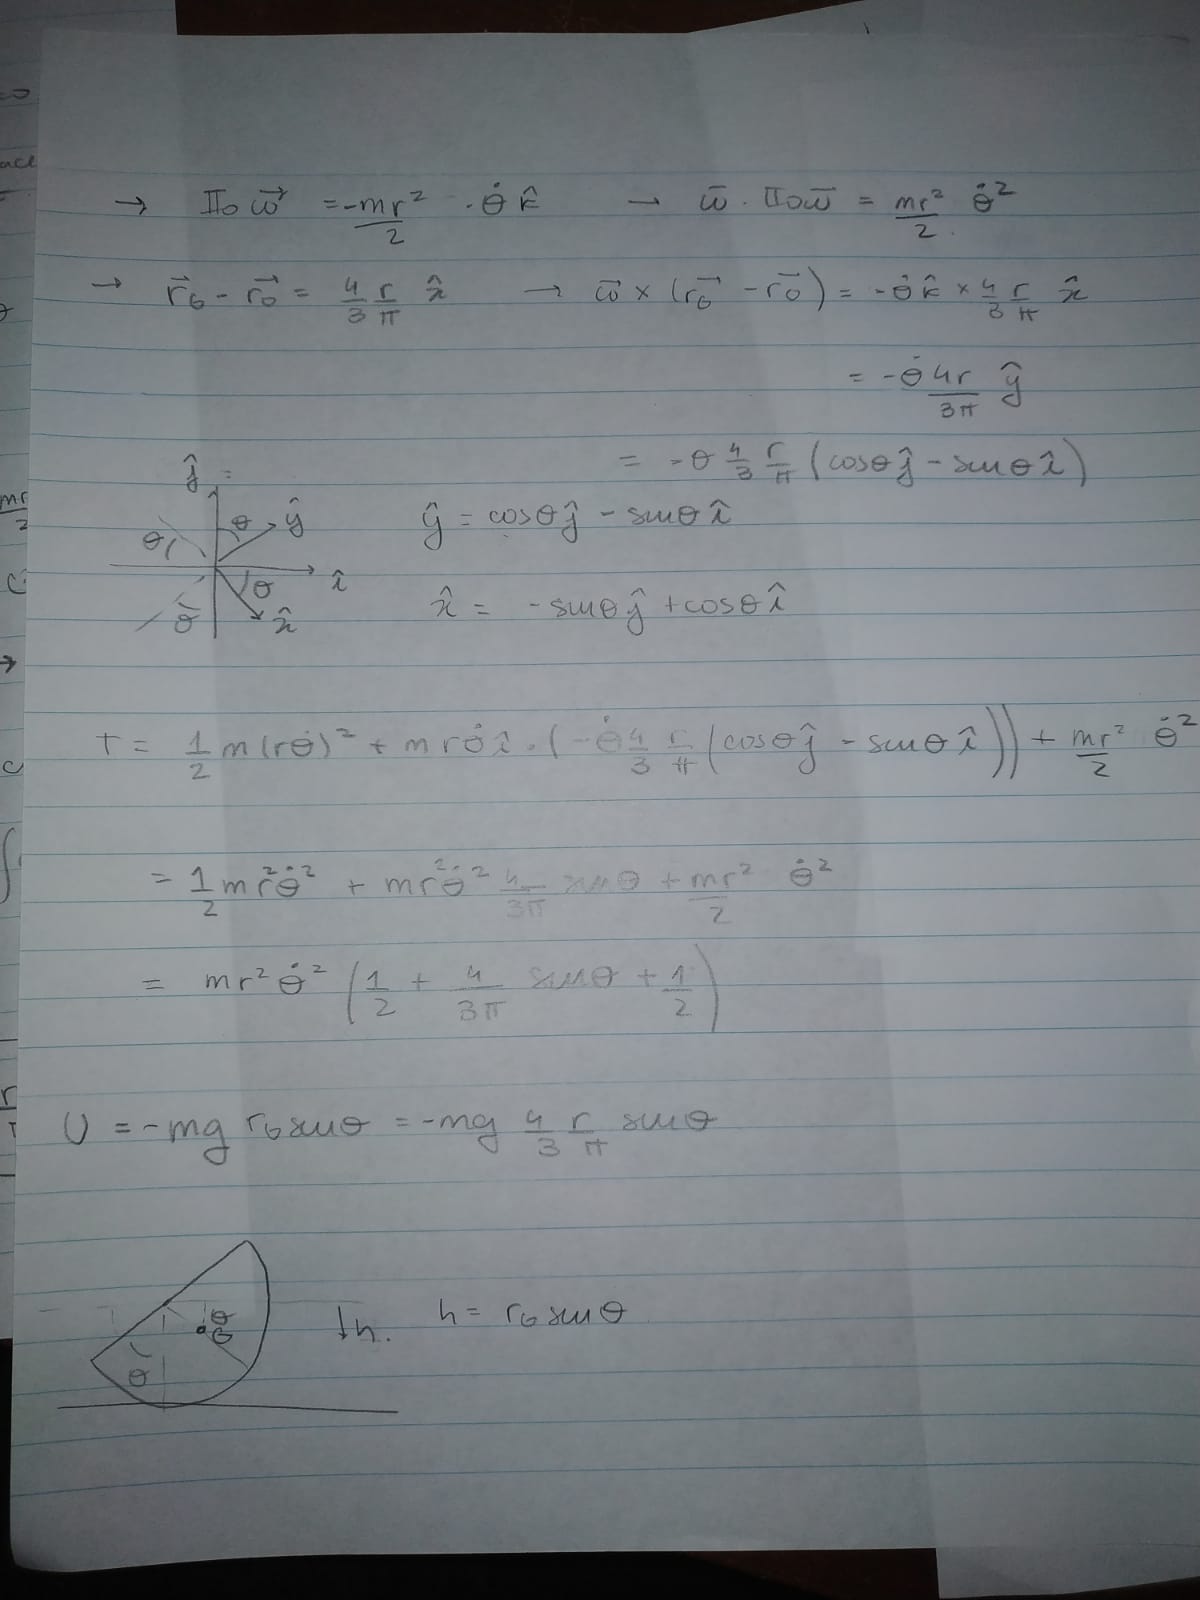 → II₀ ω⃗ = -mr²/2 · θ̇ k̂ → ω̄ · II₀ω̄ = mr²/2 θ̇²
→ r⃗_G - r⃗_O = 4/3 r/π x̂ → ω̄ × (r⃗_G - r⃗_O) = -θ̇ k̂ × 4/3 r/π x̂
= -θ̇ 4r/3π ŷ
= -θ 4/3 r/π (cosθ ĵ - sinθ î)
ĵ =
θ ŷ
ŷ = cosθ ĵ - sinθ î
θ
θ î
θ x̂
x̂ = -sinθ ĵ + cosθ î
T = 1/2 m(rθ̇)² + m r θ̇ î · (-θ̇ 4/3 r/π (cosθ ĵ - sinθ î)) + mr²/2 θ̇²
= 1/2 m r² θ̇² + m r² θ̇² 4/3π sinθ + mr²/2 θ̇²
= mr² θ̇² (1/2 + 4/3π sinθ + 1/2)
U = -mg r_G sinθ = -mg 4/3 r/π sinθ
θ
G
θ
↓h. h = r_G sinθ